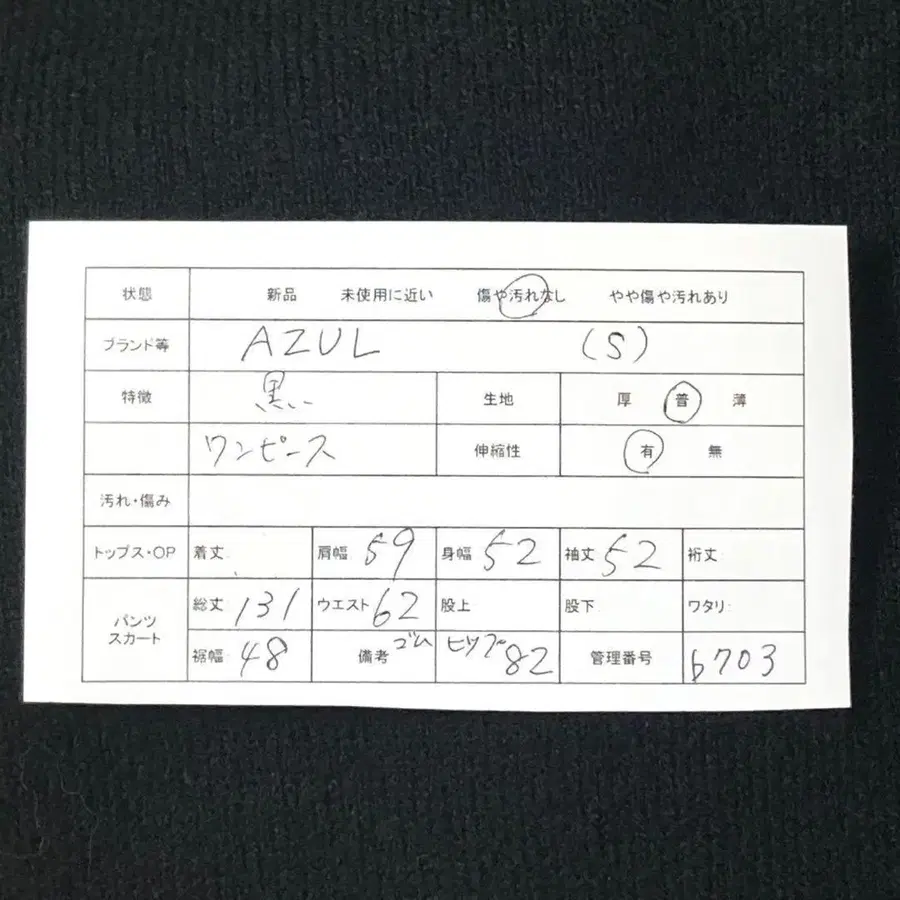 状態 新品 未使用に近い 傷や汚れなし やや傷や汚れあり
ブランド等 AZUL (S)
特徴 黒い 生地 厚 普 薄
ワンピース 伸縮性 有 無
汚れ・傷み
トップス・OP 着丈: 肩幅 59 身幅 52 袖丈 52 裄丈:
パンツ スカート 総丈: 131 ウエスト 62 股上: 股下: ワタリ:
裾幅: 48 備考 ゴム ヒップ 82 管理番号 b703